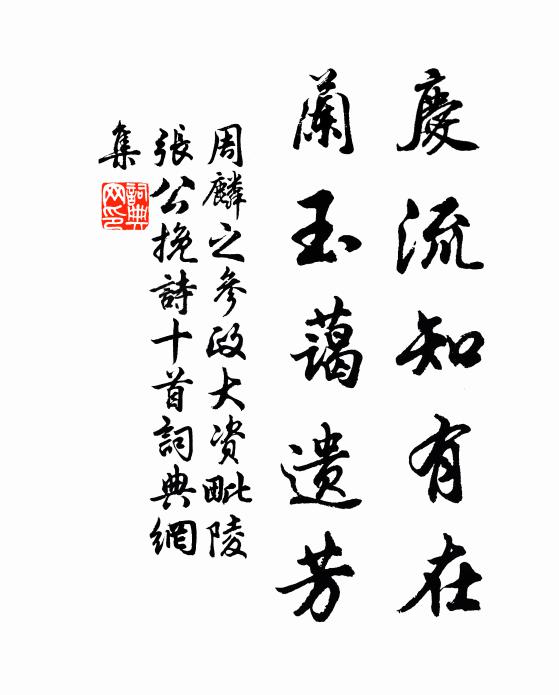 慶流知有在
蘭玉藹遺芳
周麟之參政大资毗陵
張公挽詩十首詞典網
集
詞典
网印